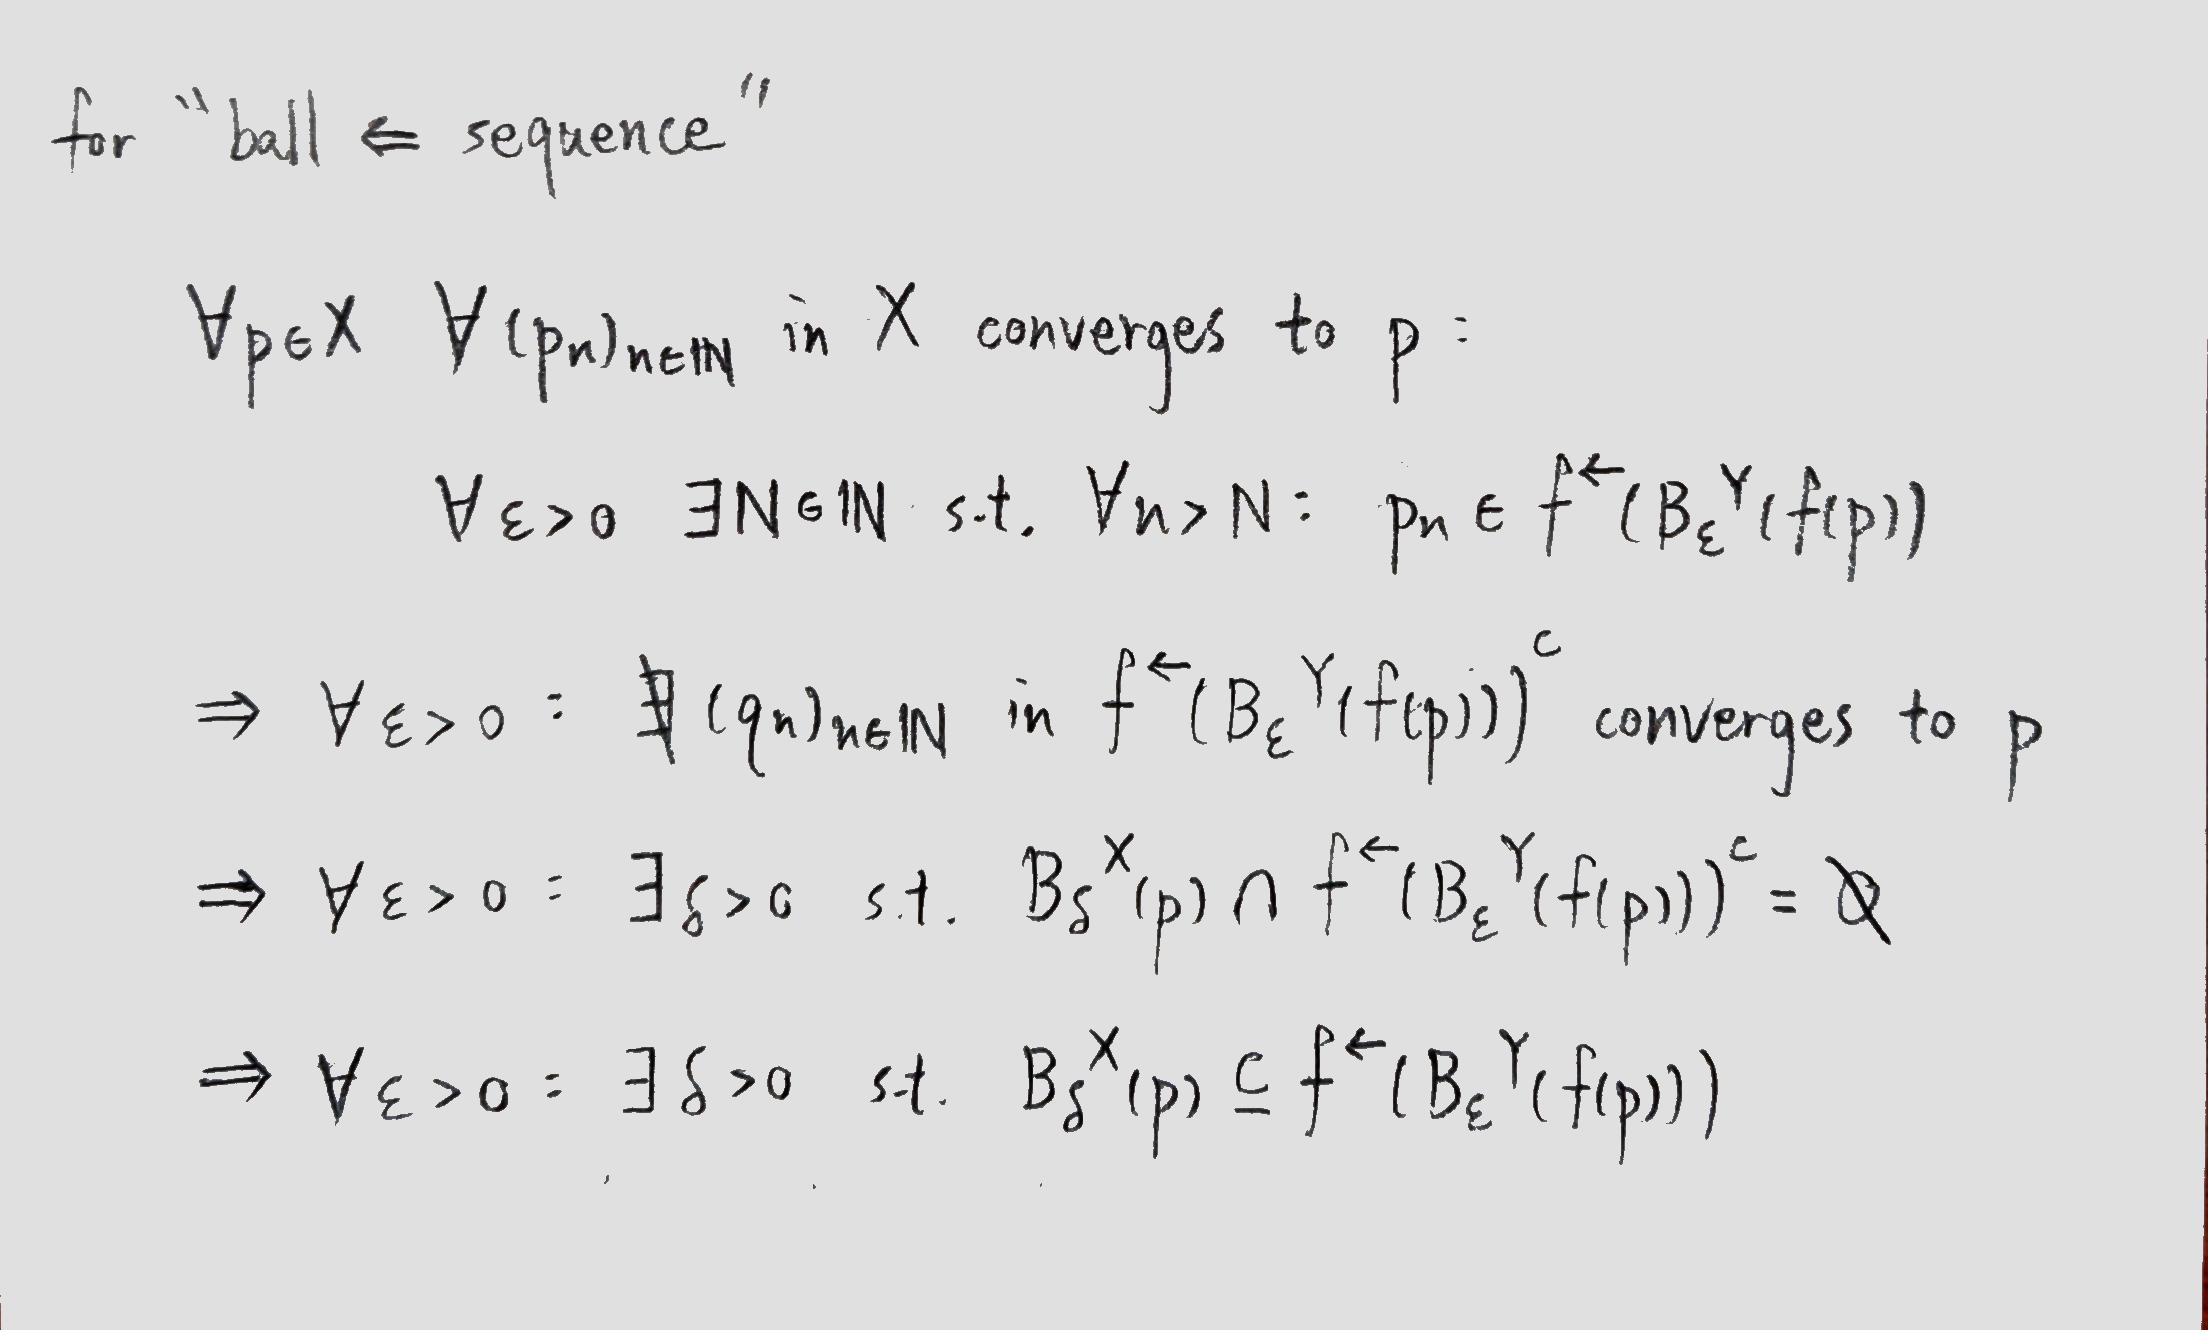 for "ball ⇐ sequence"
∀p∈X ∀(pₙ)ₙ∈ℕ in X converges to p:
∀ε>0 ∃N∈ℕ s.t. ∀n>N: pₙ ∈ f^←(B_ε^Y(f(p))
⇒ ∀ε>0: ∄(qₙ)ₙ∈ℕ in f^←(B_ε^Y(f(p)))^c converges to p
⇒ ∀ε>0: ∃δ>0 s.t. B_δ^X(p) ∩ f^←(B_ε^Y(f(p)))^c = ∅
⇒ ∀ε>0: ∃δ>0 s.t. B_δ^X(p) ⊆ f^←(B_ε^Y(f(p)))